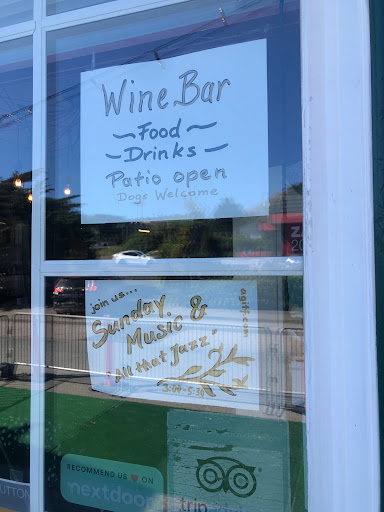 Wine Bar
~Food~
~Drinks~
Patio open
Dogs Welcome
join us...
Sunday
Music &
"All that Jazz"
3:00-5:30
RECOMMEND US ♥ ON
nextdoor
UTTON